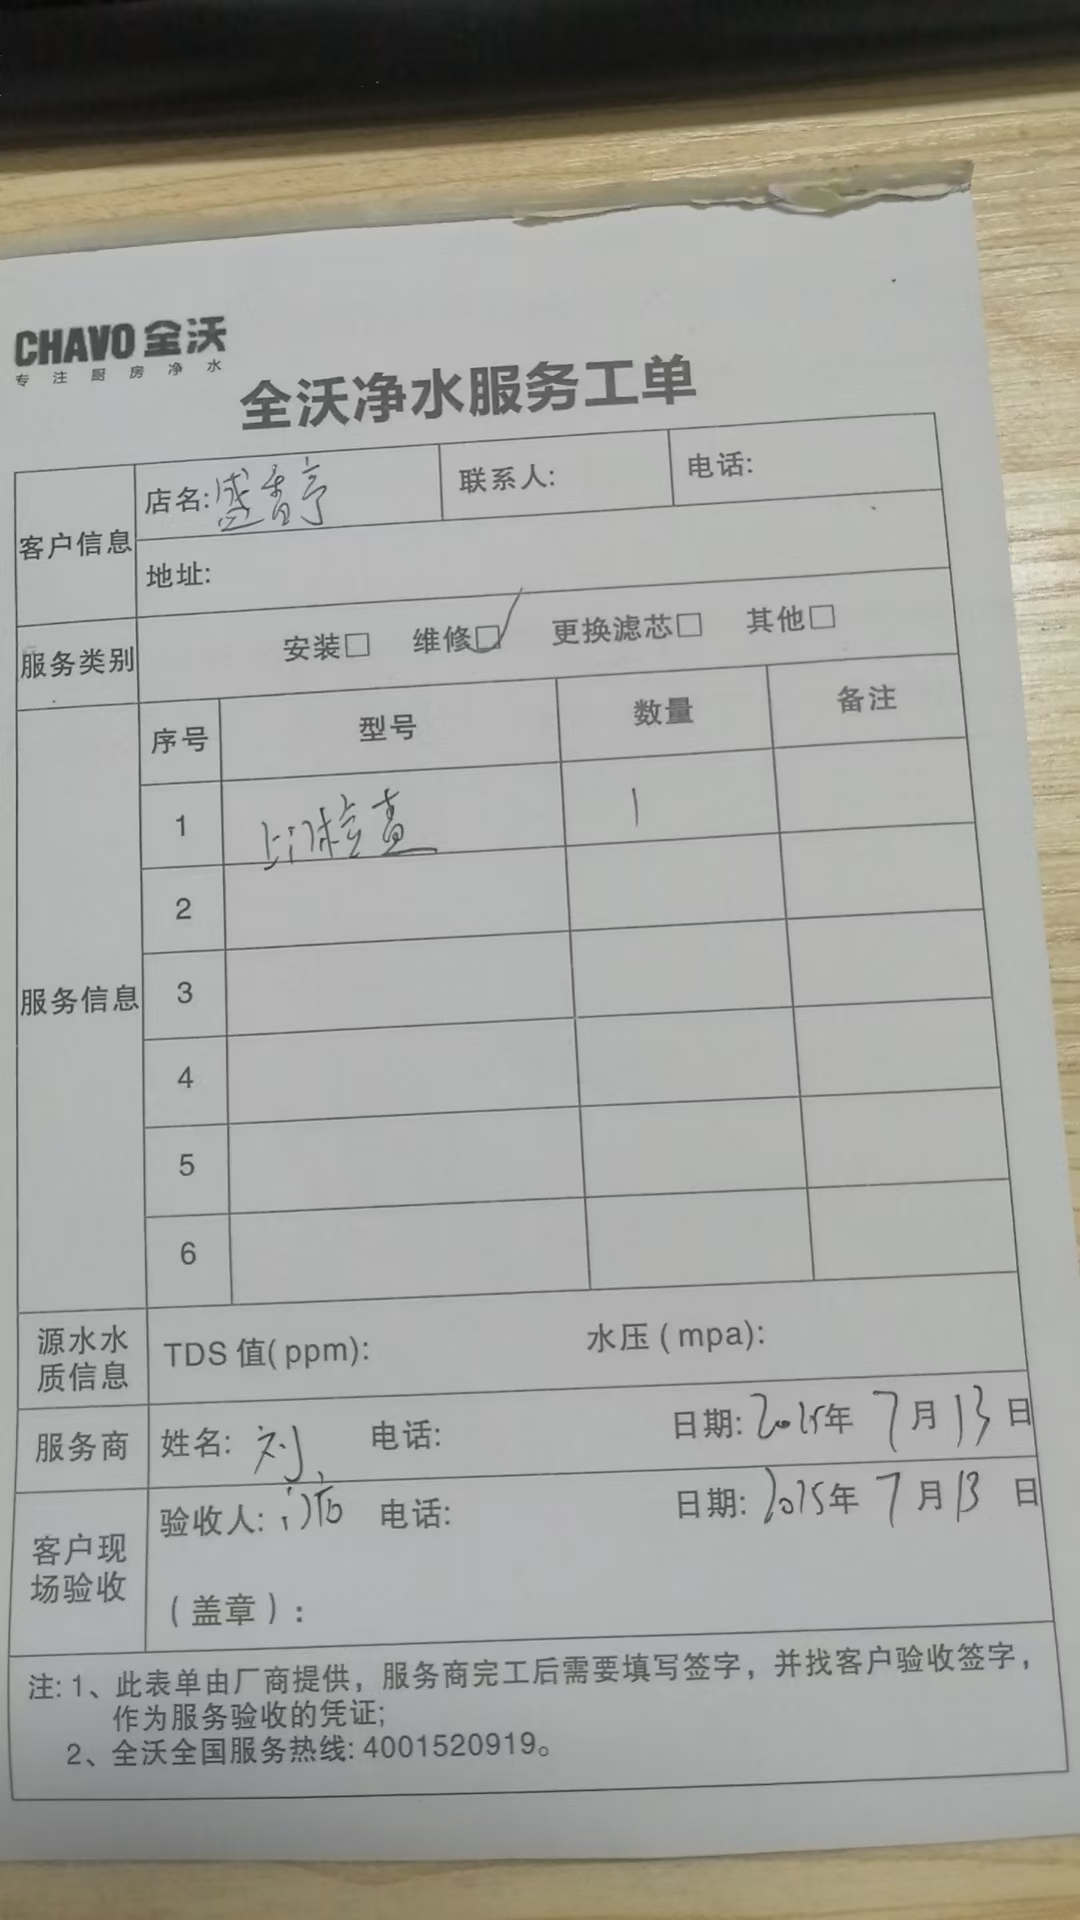 CHAVO 全沃
专注厨房净水
全沃净水服务工单
客户信息
店名: 盛香亭 联系人: 电话:
地址:
服务类别
安装□ 维修□✓ 更换滤芯□ 其他□
服务信息
序号 型号 数量 备注
1 上门检查 1
2
3
4
5
6
源水水质信息
TDS 值(ppm): 水压(mpa):
服务商
姓名: 刘 电话: 日期: 2025年 7月13日
客户现场验收
验收人: 电话: 日期: 2025年 7月13日
(盖章):
注: 1、此表单由厂商提供，服务商完工后需要填写签字，并找客户验收签字，
作为服务验收的凭证;
2、全沃全国服务热线: 4001520919。